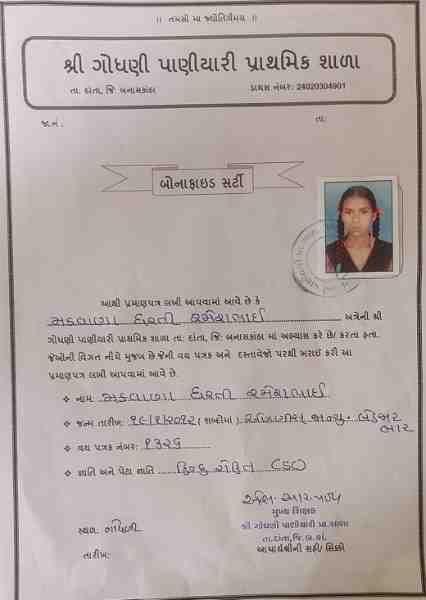 ।। તમસો મા જ્યોતિર્ગમય ।।
શ્રી ગોધણી પાણીયારી પ્રાથમિક શાળા
તા. દાંતા, જિ: બનાસકાંઠા ડાયસ નંબર: 24020304901
જા.નં. તા:
બોનાફાઇડ સર્ટી
આથી પ્રમાણપત્ર લખી આપવામાં આવે છે કે
મકવાણા ધરતી રમેશભાઈ અત્રેની શ્રી
ગોધણી પાણીયારી પ્રાથમિક શાળા તા. દાંતા, જિ: બનાસકાંઠા માં અભ્યાસ કરે છે/ કરતા હતા.
જેઓની વિગત નીચે મુજબ છે જેની વય પત્રક અને દસ્તાવેજો પરથી ખરાઈ કરી આ
પ્રમાણપત્ર લખી આપવામાં આવે છે.
❖ નામ: મકવાણા ધરતી રમેશભાઈ
❖ જન્મ તારીખ: ૧૯/૧/૨૦૧૨ (શબ્દોમાં) ઓગણીસ જાન્યુ. બેહજાર
બાર
❖ વય પત્રક નંબર: ૧૩૨૬
❖ જાતિ અને પેટા જાતિ હિન્દુ રોહિત
મુખ્ય શિક્ષક
શ્રી ગોધણી પાણીયારી પ્રા.શાળા
તા.દાંતા,જિ.બ.કાં.
સ્થળ: ગોધણી
તારીખ: આચાર્યશ્રીની સહી/ સિક્કો